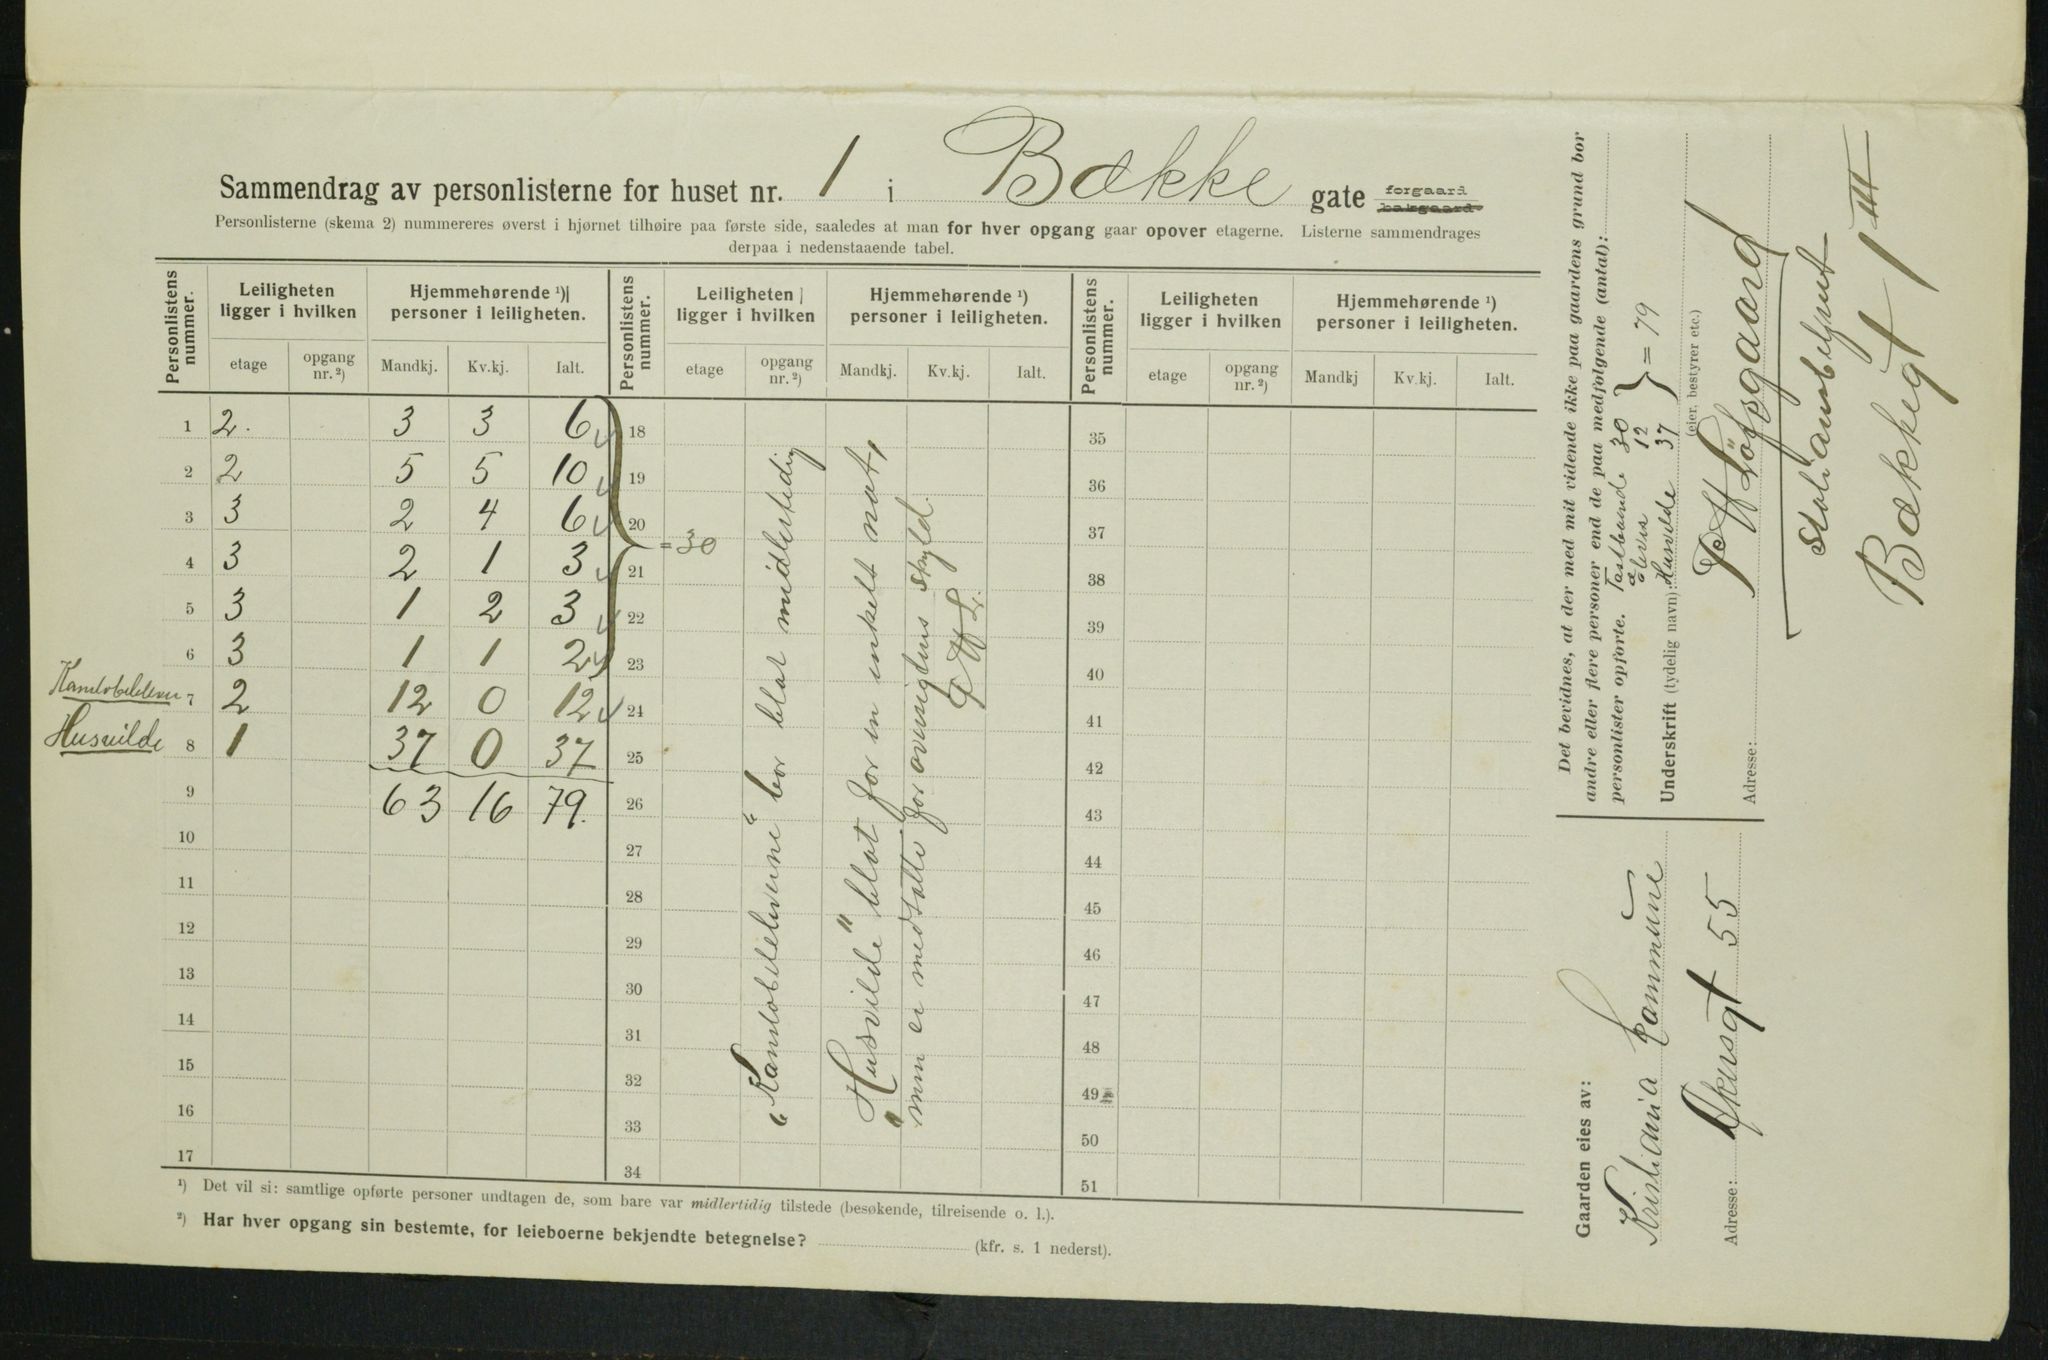 Sammendrag av personlisterne for huset nr. 1 i Bække gate forgaard
bakgaard
Personlisterne (skema 2) nummereres øverst i hjørnet tilhøire paa første side, saaledes at man for hver opgang gaar opover etagerne. Listerne sammendrages
derpaa i nedenstaaende tabel.
Personlistens nummer. Leiligheten ligger i hvilken Hjemmehørende ¹) personer i leiligheten. Personlistens nummer. Leiligheten ligger i hvilken Hjemmehørende ¹) personer i leiligheten. Personlistens nummer. Leiligheten ligger i hvilken Hjemmehørende ¹) personer i leiligheten.
etage opgang nr. ²) Mandkj. Kv.kj. Ialt. etage opgang nr. ²) Mandkj. Kv.kj. Ialt. etage opgang nr. ²) Mandkj Kv.kj. Ialt.
1 2. 3 3 6 18 35
2 2 5 5 10 19 36
3 3 2 4 6 20 37
= 30
4 3 2 1 3 21 38
5 3 1 2 3 22 39
6 3 1 1 2 23 40
7 2 12 0 12 24 41
Husvilde 8 1 37 0 37 25 42
9 63 16 79. 26 43
10 27 44
11 28 45
12 29 46
13 30 47
14 31 48
15 32 49
16 33 50
17 34 51
bor blot midlertidig
"Husvilde" blot for en enkelt nat,
men er medtalte for oversigtens skyld.
¹) Det vil si: samtlige opførte personer undtagen de, som bare var midlertidig tilstede (besøkende, tilreisende o. l.).
²) Har hver opgang sin bestemte, for leieboerne bekjendte betegnelse? (kfr. s. 1 nederst).
Det bevidnes, at der med mit vidende ikke paa gaardens grund bor
andre eller flere personer end de paa medfølgende (antal):
personlister opførte. Fastboende 30
Elever 12
Husvilde 37
= 79
Underskrift (tydelig navn):
(eier, bestyrer etc.)
Löfsgaard
Adresse:
stationsbetjent
Bækkegt 1 III
Gaarden eies av:
Kristiania kommune
Adresse: Akersgt 55